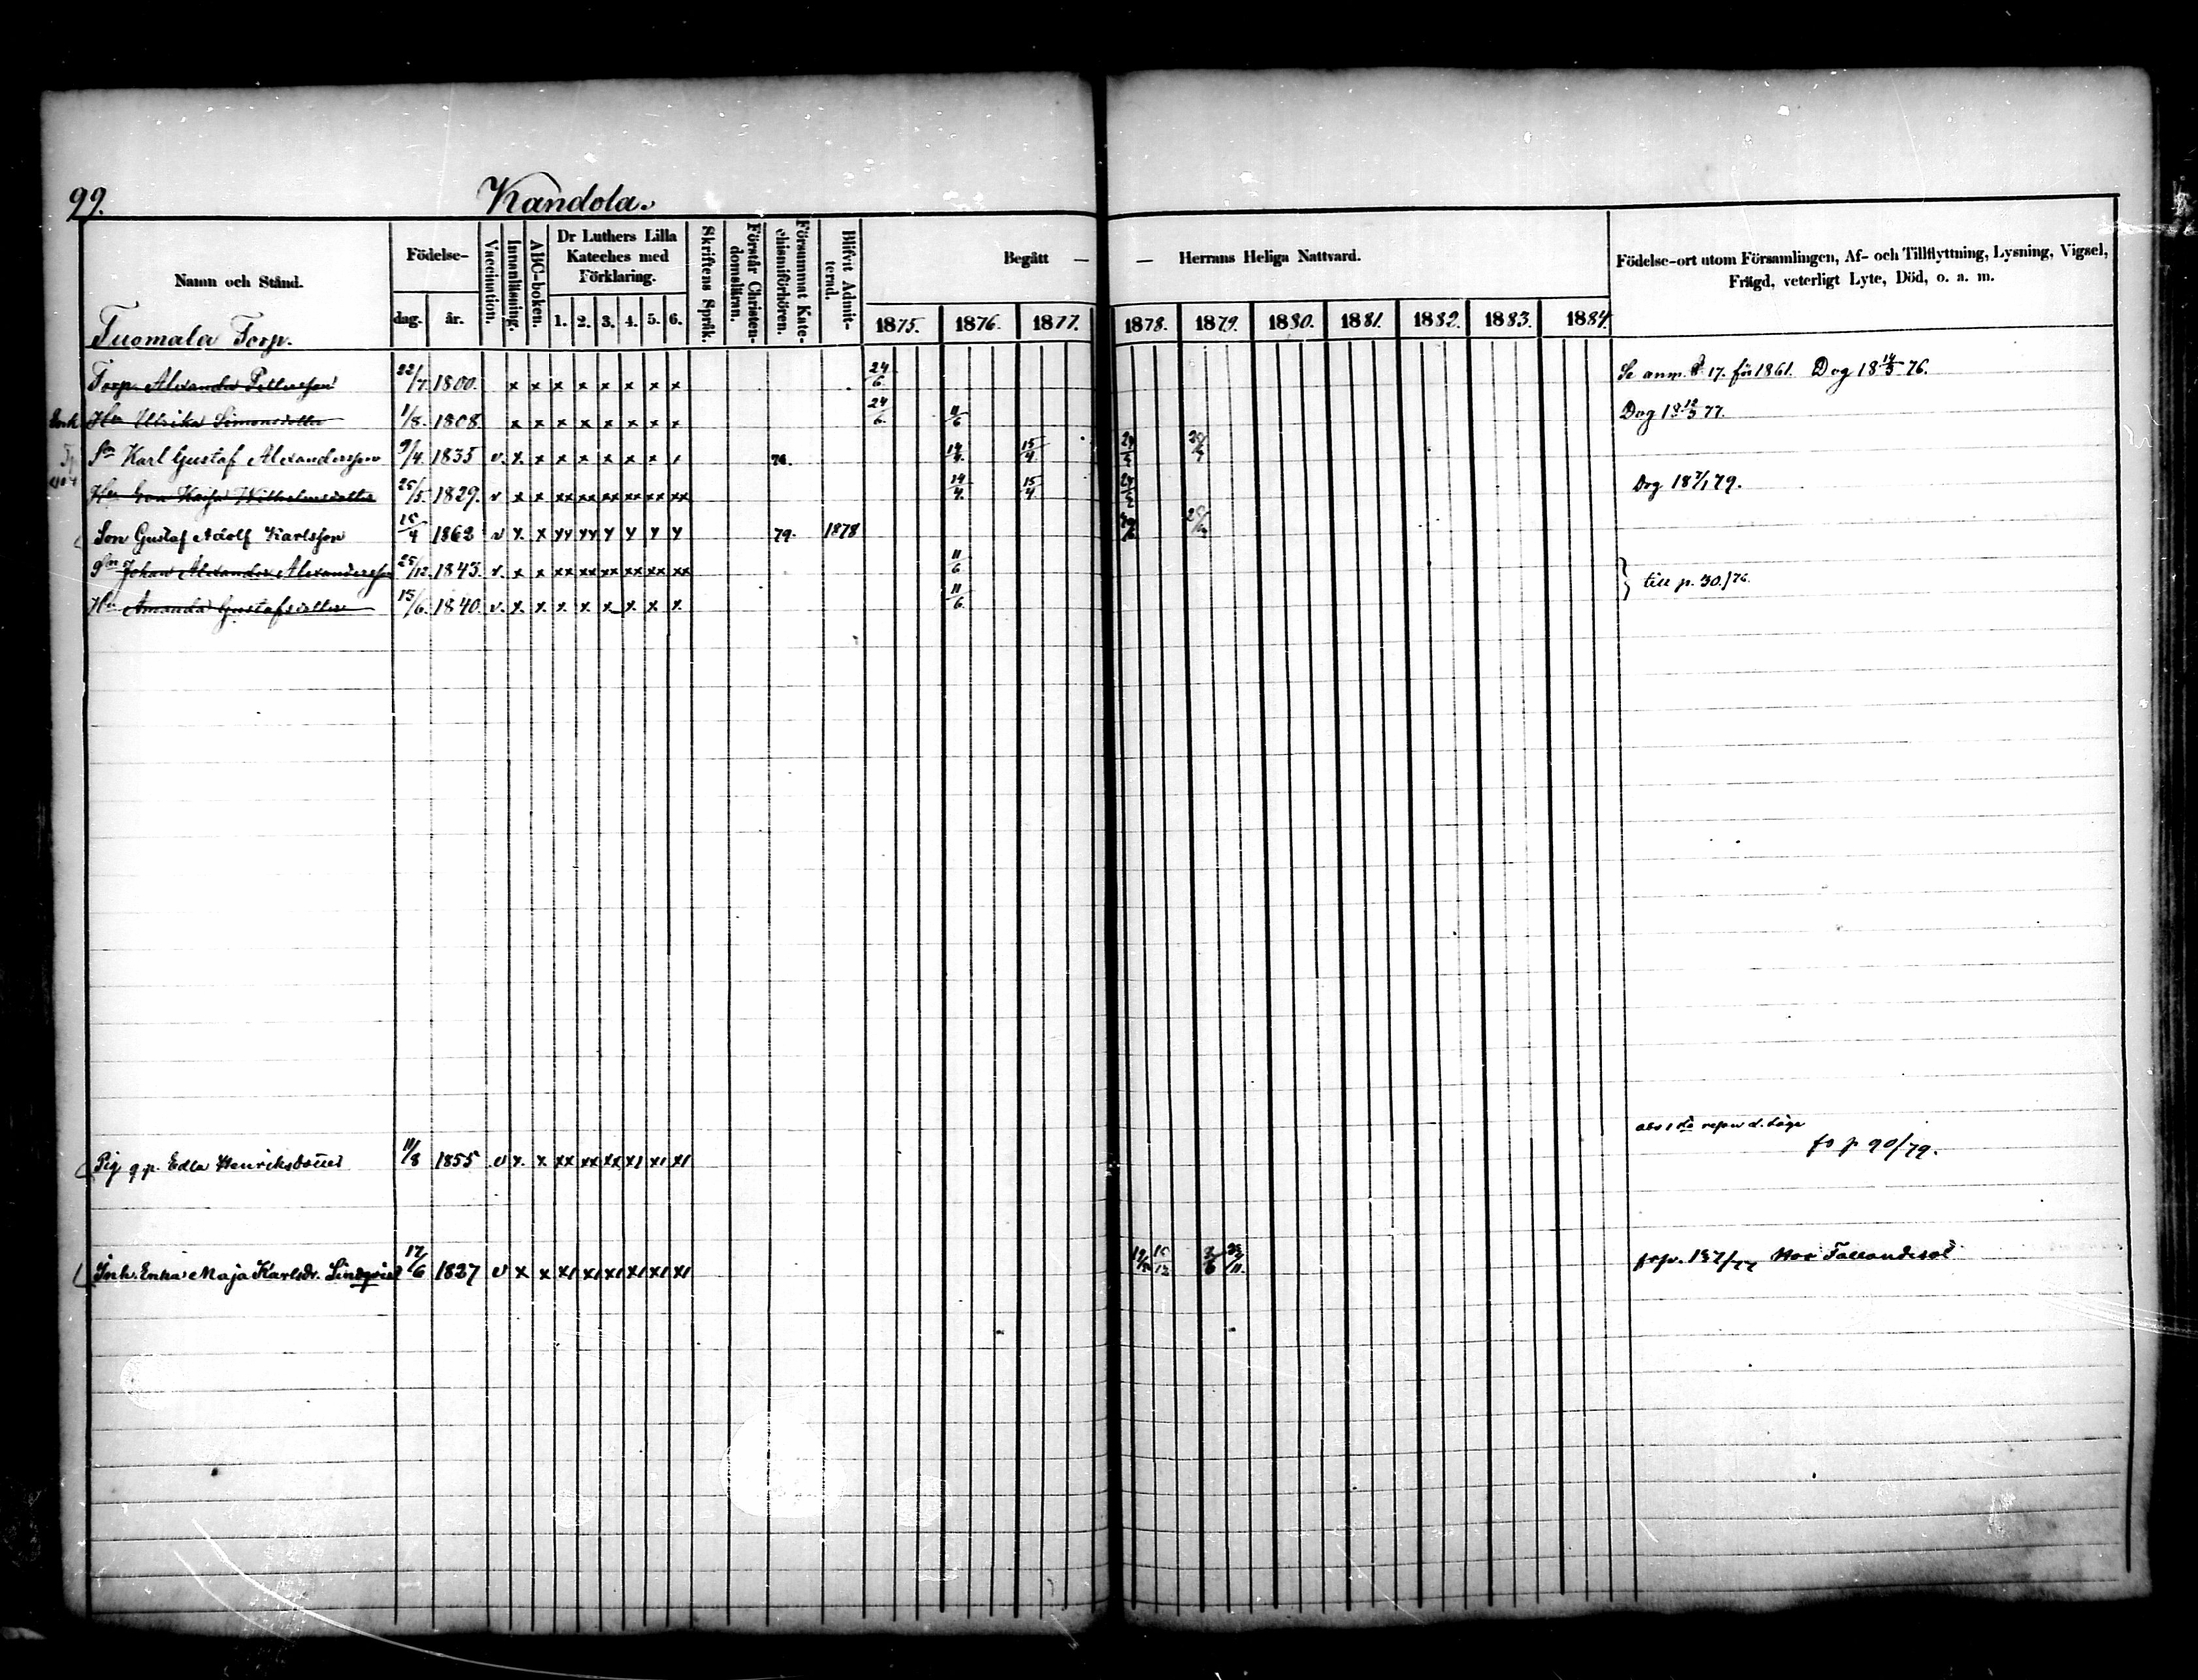 99. Kandola.
Namn och Stånd. Födelse- dag. år. Vaccination. Innanläsning. ABC-boken. Dr Luthers Lilla Kateches med Förklaring. 1. 2. 3. 4. 5. 6. Skriftens Språk. Förstår Christendomsläran. Försummat Katechismiförhören. Blifvit Admitterad. Begått — — Herrans Heliga Nattvard. Födelse-ort utom Församlingen, Af- och Tillflyttning, Lysning, Vigsel, Frägd, veterligt Lyte, Död, o. a. m.
1875. 1876. 1877. 1878. 1879. 1880. 1881. 1882. 1883. 1884
Tuomala Torp.
Torp. Alexander Pettersson 22/7. 1800. x x x x x x x x 24/6. Se anm. 17. för 1861. Dog 18 14/3 76.
Enk. Hu Ulrika Simonsdotter 1/8. 1808. x x x x x x x x 24/6. 11/6 Dog 18 12/3 77.
Sn Karl Gustaf Alexandersson 9/4. 1835 v. x. x x x x x x 76. 14/4. 15/4.
Hu Eva Kaisa Wilhelmsdotter 25/5. 1829. v x x xx xx xx xx xx xx 14/4. 15/4 Dog 18 7/1 79.
Son Gustaf Adolf Karlsson 15/4 1862 v x. x 79. 1878
Sn Johan Alexander Alexandersson 25/12. 1843. v. x x xx xx xx xx xx xx 11/6
Hu Amanda Gustafsdotter 15/6. 1840. v. x. x x. x x x x x. 11/6. } till p. 30./76.
Pig. Edla Henriksdotter 11/8 1855 v x. x xx xx xx x1 x1 x1 fr p 90/79.
Inh. Enka Maja Karlsdr. Lindqvist 17/6 1827 v x x x1 x1 x1 x1 x1 x1